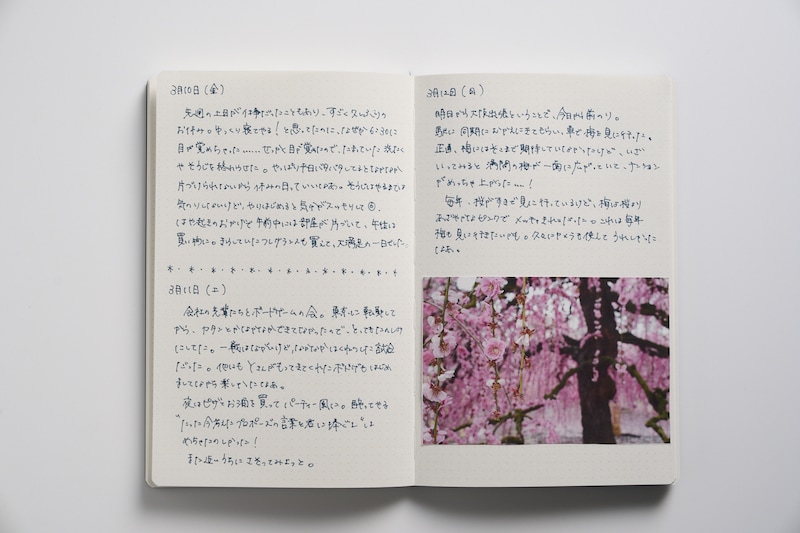 3月10日（金）
先週の土日が仕事だったこともあり、すごく久しぶりの
お休み。ゆっくり寝てやる！と思ってたのに、なぜか6:30に
目が覚めちゃった……せっかく目が覚めたので、たまっていた洗たく
やそうじを終わらせた。やっぱり平日バタバタしてるとなかなか
片づけられないから休みの日っていいなあ。そうじはやるまでは
気のりしないけど、やりはじめると気分がスッキリして
はや起きのおかげで午前中には部屋が片づいて、午後は
買い物に。きらしていたフレグランスも買えて、大満足の一日でした
3月11日（土）
会社の先輩たちとボードゲームの会。東京に転勤して
から、カタンとかなかなかできてなかったので、とってもたのしみ
にしてた。一戦はながいけど、なかなか白熱した試合
だった。他にもYさんがもってきてくれたボドゲもはじめ
ましてながら楽しかったなあ。
夜はピザとお酒を買ってパーティー風に。酔ってやる
"たった今考えたプロポーズの言葉を君に捧ぐよ"は
めちゃたのしかった！
また近いうちにさそってみよっと。
3月12日（日）
明日から大阪出張ということで、今日から前のり。
同期におむかえにきてもらい、車で梅を見に行った。
正直、梅にはそこまで期待していなかったけど、いざ
いってみると満開の梅が一面に広がっていて、テンション
がめっちゃ上がった…！
毎年、桜がすきで見に行っているけど、梅は桜より
あざやかなピンクでメッチャきれいだった。これは毎年
梅も見に行きたいかも。久々にカメラも使えてうれしかった
なあ。